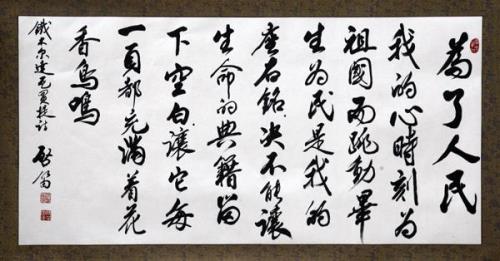 為了人民
我的心時刻為
祖國而跳動畢
生為民是我的
座右銘決不能讓
生命的典籍留
下空白讓它每
一頁都充滿着花
香鳥鳴
鐵木尔達瓦買提詩